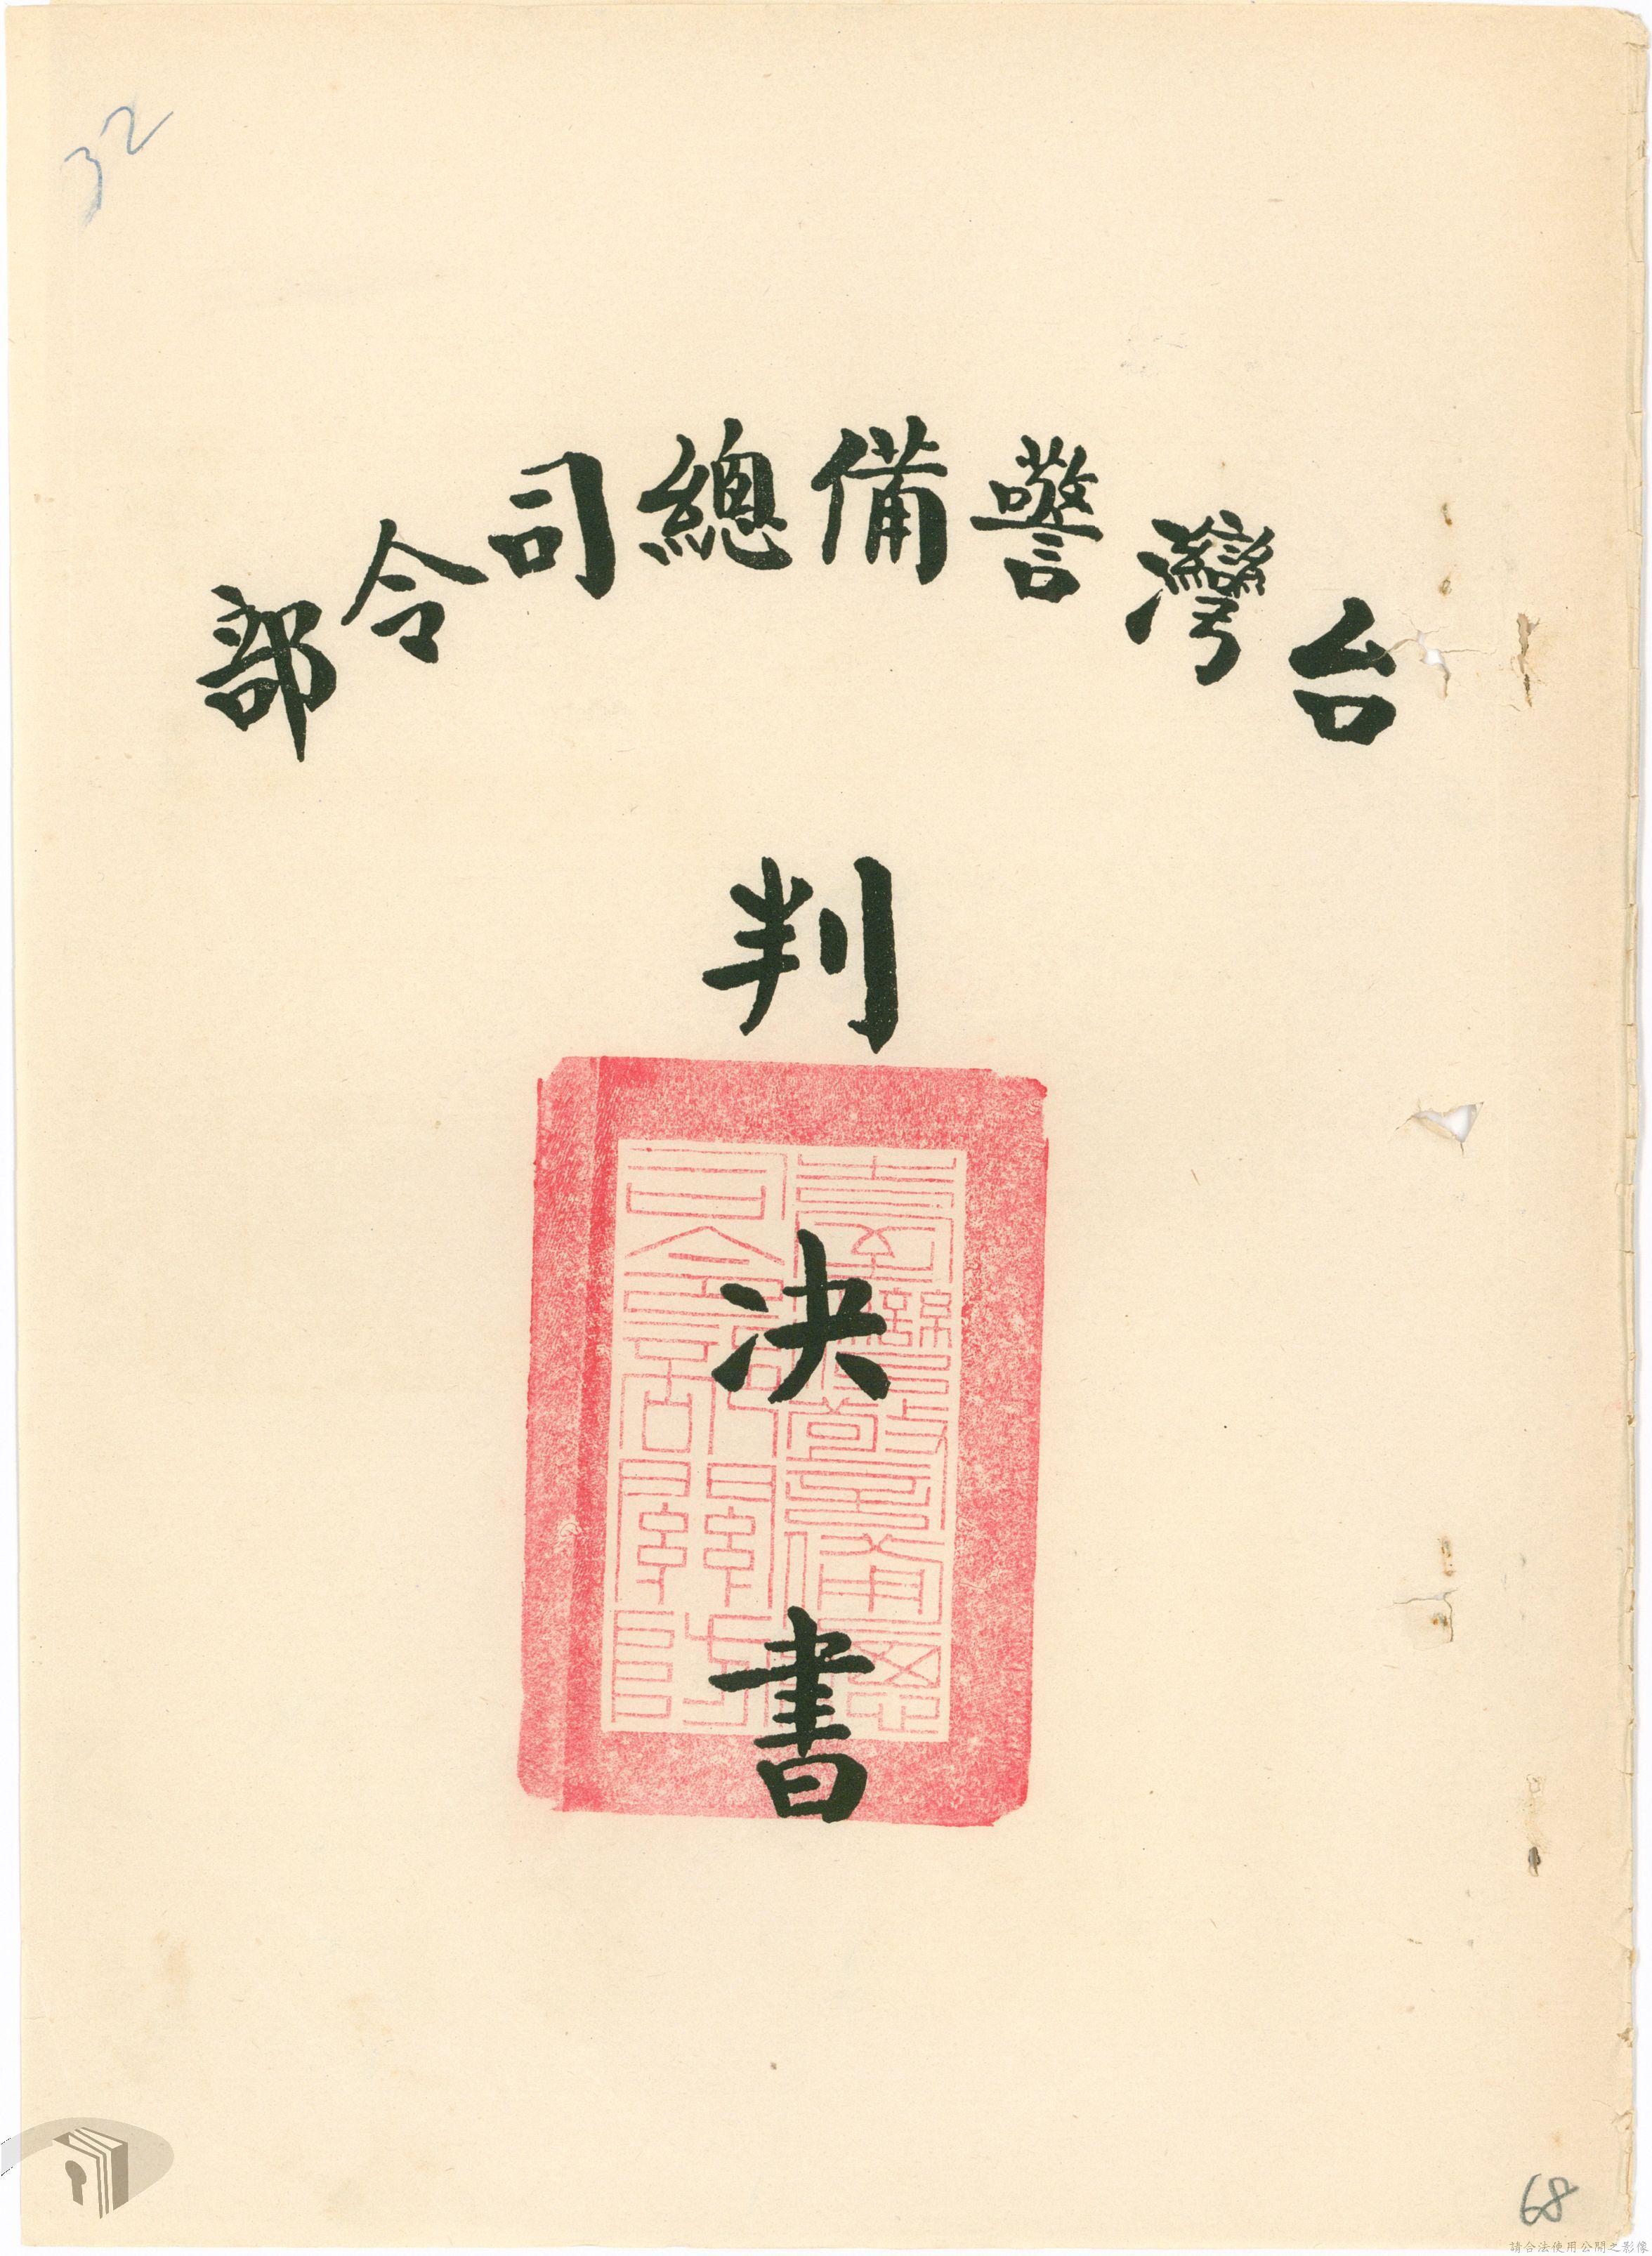 32
台灣警備總司令部
判
決
書
68
請合法使用公開之影像